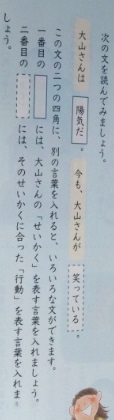 次の文を読んでみましょう。
大山さんは 陽気だ 。今も、大山さんが 笑っている 。
この文の二つの四角に、別の言葉を入れると、いろいろな文ができます。
一番目の には、大山さんの「せいかく」を表す言葉を入れましょう。
二番目の には、そのせいかくに合った「行動」を表す言葉を入れま
しょう。